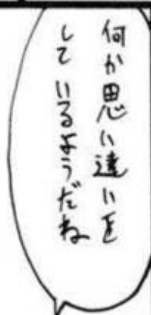 何か思い違いを
しているようだね